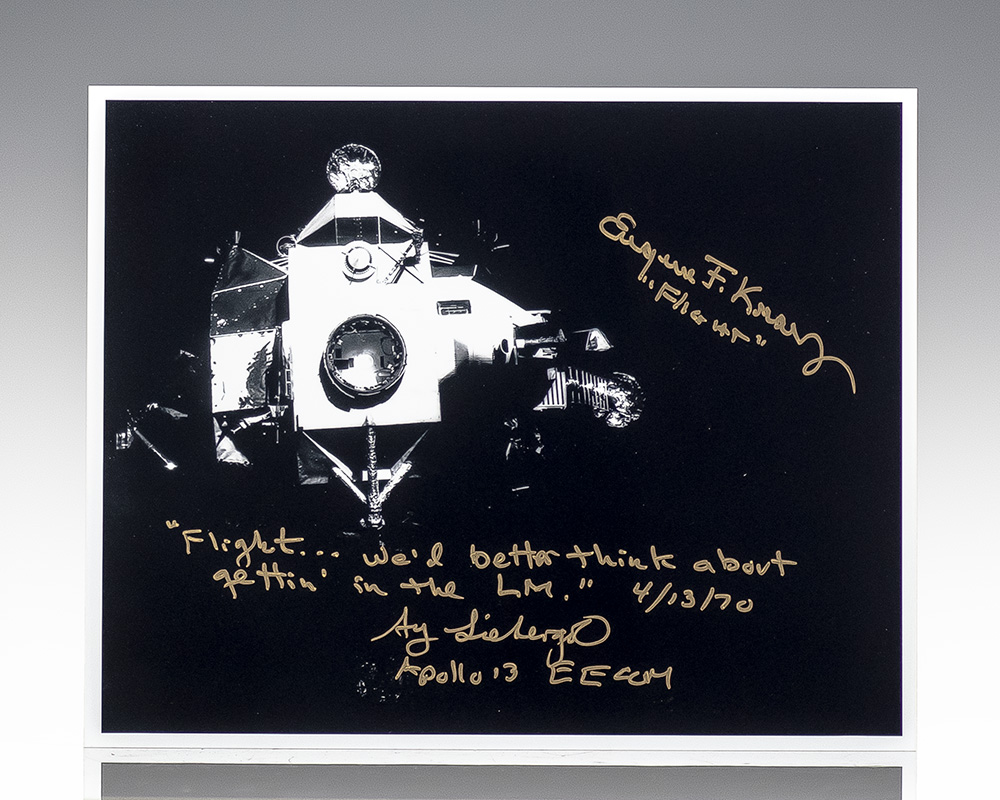 Eugene F. Kranz
"Flight"
"Flight... we'd better think about
gettin' in the LM." 4/13/70
Sy Liebergot
Apollo 13 EECOM